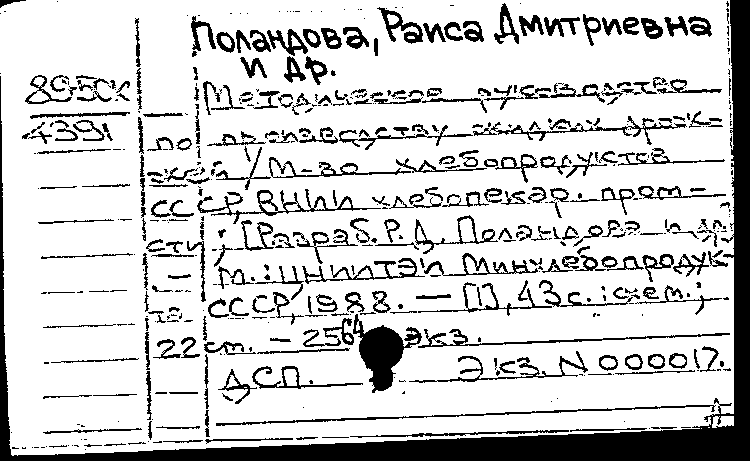 Поландова, Раиса Дмитриевна
и др.
895СК Методическое руководство
4391 по производству жидких дрож-
жей / М-во хлебопродуктов
СССР, ВНИИ хлебопекар. пром-
сти; [Разраб. Р.Д. Поландова и др.]
. — М.: ЦНИИТЭИ Минхлебопродук-
та СССР, 1988. — [1], 43 с.: схем.;
22 см. — 256 экз.
ДСП. Экз. N 000017.